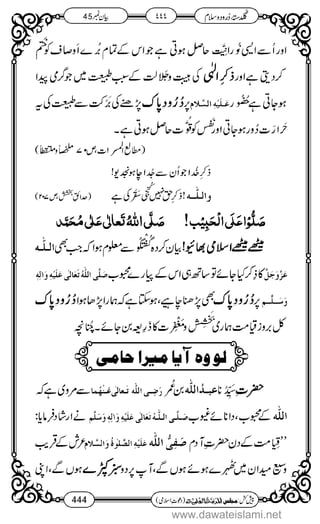 گلدستۂ دُرود و سلام ٤٤٤ بیان نمبر 45
اور اُسے ایسی نُورانِیَّت حاصل ہوتی ہے جو اس کے تمام بُرے اَوصاف کو ختم
کردیتی ہے اور ذکرِ الٰہی کی ہیبت وجَلالت کے سبب طبیعت میں جو گرمی پیدا
ہوجاتی ہے حُضُور عَـلَـيْهِ السَّلام پر دُرُودِ پاک پڑھنے کی بَرَکت سے طبیعت کی یہ
حَرَارت دُور ہوجاتی اور نفس کو قُوَّت حاصل ہوتی ہے۔
(مطالع المسرات، ص٧٠ ملخصاً وملتقطاً)
ذِکرِ خدا جو اُن سے جُدا چاہو نجدیو!
وَالـلّٰـه ذِکرِ حق نہیں کُنجی سَقَر کی ہے (حدائقِ بخشش، ص ٢٠٧)
صَلُّوْا عَلَى الْحَبِيْب! صَلَّى اللّٰهُ تَعَالٰى عَلٰى مُحَمَّد
میٹھے میٹھے اسلامی بھائیو! بیان کردہ گفتگو سے معلوم ہوا کہ جب بھی اللّٰه
عَزَّوَجَلَّ کا ذکر کیا جائے تو ساتھ ہی اس کے پیارے محبوب صَلَّى اللّٰهُ تَعَالٰى عَلَيْهِ وَاٰلِهٖ
وَسَـلَّـم پر دُرُودِ پاک بھی پڑھنا چاہیے، ہوسکتا ہے کہ ہمارا پڑھا ہوا دُرُودِ پاک
کل بروزِ قیامت ہماری بخشش و مَغْفِرت کا ذَرِیعہ بن جائے۔ چُنانچہ
لو وہ آیا میرا حامی
حضرتِ سَیِّدُنا عبـدُ اللّٰه بن عُمَر رَضِـیَ اللّٰهُ تَعَالٰى عَنْهُمَا سے مروی ہے کہ
اللّٰه کے محبوب، دانائے غُیوب صَلَّـى اللّٰهُ تَعَالٰى عَلَيْهِ وَاٰلِهٖ وَسَلَّم نے ارشاد فرمایا:
”قیامت کے دن حضرتِ آدم صَفِیُّ اللّٰه عَلَيْهِ الصَّلٰوةُ وَالسَّلام عرش کے قریب
وسیع میدان میں ٹھہرے ہوئے ہوں گے، آپ پر دو سبز کپڑے ہوں گے، اپنی
444
www.dawateislami.net